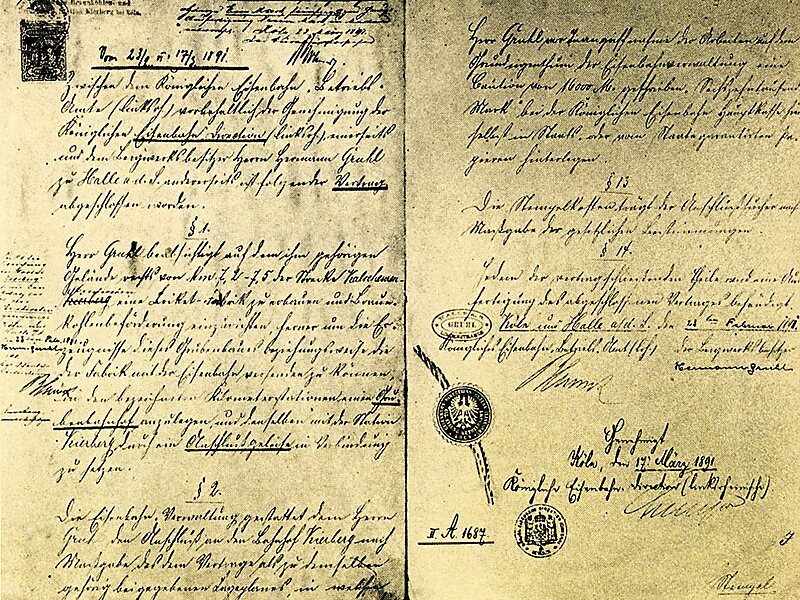 Kierberg bei Köln.
Vom 23/2 u. 17/3 1891.
Zwischen dem Königlichen Eisenbahn-Betriebs-
Amte (linksrh.) vorbehaltlich der Genehmigung der
Königlichen Eisenbahn-Direction (linksrh.) einerseits
und dem Bergwerksbesitzer Herrn Hermann Gruhl
zu Halle a.d.S. andererseits ist folgender Vertrag
abgeschlossen worden.
§ 1.
Herr Gruhl beabsichtigt auf dem ihm gehörigen
Gelände rechts von km 7,2-7,5 der Strecke Kalscheuren-
eine Briket-Fabrik zu erbauen und Braun-
Kohlenbeförderung einzurichten, ferner um die Er-
zeugnisse dieses Grubenbaues beziehungsweise die
der Fabrik mit der Eisenbahn versenden zu können,
in den bezeichneten Kilometerstationen einen Gru-
benbahnhof anzulegen und denselben mit der Station
Kierberg durch ein Anschlußgeleise in Verbindung
zu setzen.
§ 2.
Die Eisenbahn-Verwaltung gestattet dem Herrn
Gruhl den Anschluß an den Bahnhof Kierberg nach
Maßgabe des dem Vertrage als zu demselben
gehörig beigegebenen Lageplanes, in welchem
Herr Gruhl vor Inangriffnahme der Arbeiten auf dem
Grundeigenthum der Eisenbahnverwaltung eine
Caution von 16000 M. geschrieben: Sechszehntausend
Mark bei der Königlichen Eisenbahn Hauptkasse hier-
selbst in Staats- oder vom Staate garantirten Pa-
pieren hinterlegen.
§ 13
Die Stempelkosten trägt der Anschlußsucher nach
Maßgabe der gesetzlichen Bestimmungen.
§ 14.
Jedem der vertragschließenden Theile wird eine Aus-
fertigung des abgeschlossenen Vertrages behändigt.
Köln und Halle a/d. S. den 23ten Februar 1891.
GRUHL
Königliches Eisenbahn-Betriebs-Amt (lrh.) der Bergwerksbesitzer
Hermann Gruhl
Genehmigt
Köln, den 17. März 1891
Königliche Eisenbahn-Direction (linksrheinische)
II A. 1687
Stempel